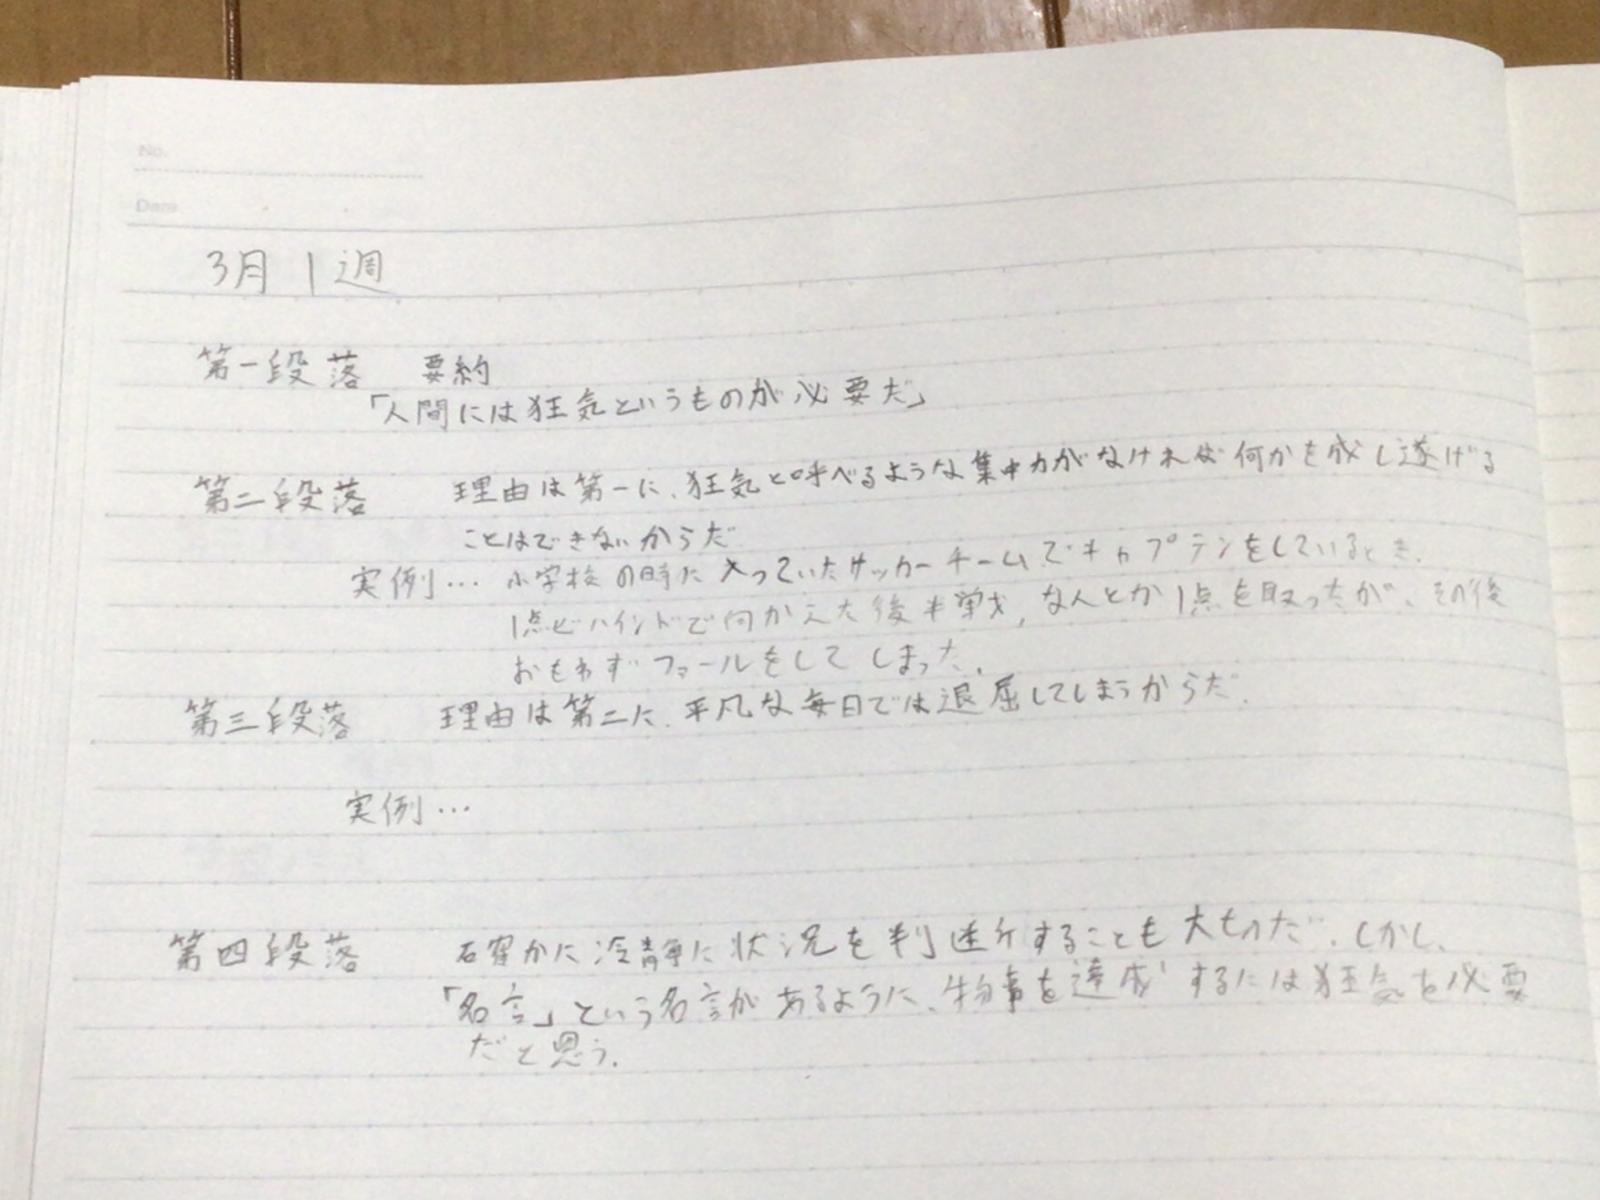 No.
Date
3月1週
第一段落 要約
「人間には狂気というものが必要だ」
第二段落 理由は第一に、狂気と呼べるような集中力がなければ何かを成し遂げる
ことはできないからだ
実例… 小学校の時に入っていたサッカーチームでキャプテンをしているとき、
1点ビハインドで向かえた後半戦、なんとか1点を取ったが、その後
おもわずファールをしてしまった。
第三段落 理由は第二に、平凡な毎日では退屈してしまうからだ。
実例…
第四段落 確かに冷静に状況を判断することも大切だ。しかし、
「名言」という名言があるように、物事を達成するには狂気を必要
だと思う。